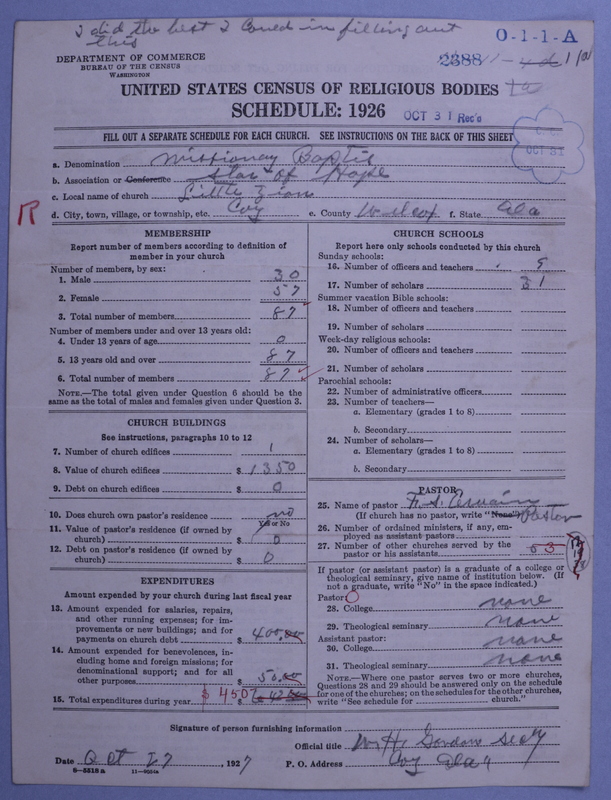 I did the best I Could in filling out
this
O-1-1-A
DEPARTMENT OF COMMERCE
BUREAU OF THE CENSUS
WASHINGTON
2388
UNITED STATES CENSUS OF RELIGIOUS BODIES
SCHEDULE: 1926
OCT 31 Rec'd
FILL OUT A SEPARATE SCHEDULE FOR EACH CHURCH. SEE INSTRUCTIONS ON THE BACK OF THIS SHEET
OCT 31
a. Denomination Missionary Baptis
b. Association or Conference Star of Hope
c. Local name of church Little Zion
R
d. City, town, village, or township, etc. Coy e. County Wilcox f. State Ala
MEMBERSHIP
Report number of members according to definition of
member in your church
Number of members, by sex:
1. Male 30
2. Female 57
3. Total number of members 87
Number of members under and over 13 years old:
4. Under 13 years of age 0
5. 13 years old and over 87
6. Total number of members 87
NOTE.—The total given under Question 6 should be
same as the total of males and females given under Question 3.
CHURCH BUILDINGS
See instructions, paragraphs 10 to 12
7. Number of church edifices 1
8. Value of church edifices $ 1350
9. Debt on church edifices $ 0
10. Does church own pastor's residence no
Yes or No
11. Value of pastor's residence (if owned by
church) $ 0
12. Debt on pastor's residence (if owned by
church) $ 0
EXPENDITURES
Amount expended by your church during last fiscal year
13. Amount expended for salaries, repairs,
and other running expenses; for im-
provements or new buildings; and for
payments on church debt $ 400.00
14. Amount expended for benevolences, in-
cluding home and foreign missions; for
denominational support; and for all
other purposes $ 50.00
15. Total expenditures during year $ 450
CHURCH SCHOOLS
Report here only schools conducted by this church
Sunday schools:
16. Number of officers and teachers 9
17. Number of scholars 31
Summer vacation Bible schools:
18. Number of officers and teachers
19. Number of scholars
Week-day religious schools:
20. Number of officers and teachers
21. Number of scholars
Parochial schools:
22. Number of administrative officers
23. Number of teachers—
a. Elementary (grades 1 to 8)
b. Secondary
24. Number of scholars—
a. Elementary (grades 1 to 8)
b. Secondary
PASTOR
25. Name of pastor
(If church has no pastor, write "None") Pastor
26. Number of ordained ministers, if any, em-
ployed as assistant pastors
27. Number of other churches served by the
pastor or his assistants 3
If pastor (or assistant pastor) is a graduate of a college or
theological seminary, give name of institution below. (If
not a graduate, write "No" in the space indicated.)
Pastor:
28. College none
29. Theological seminary none
Assistant pastor:
30. College none
31. Theological seminary none
NOTE.—Where one pastor serves two or more churches,
Questions 28 and 29 should be answered only on the schedule
for one of the churches; on the schedules for the other churches,
write "See schedule for church."
Signature of person furnishing information
Official title W. H. Gordon Secty
Date Oct 27, 1927 P. O. Address Coy Ala
8-5518a 11-9034a